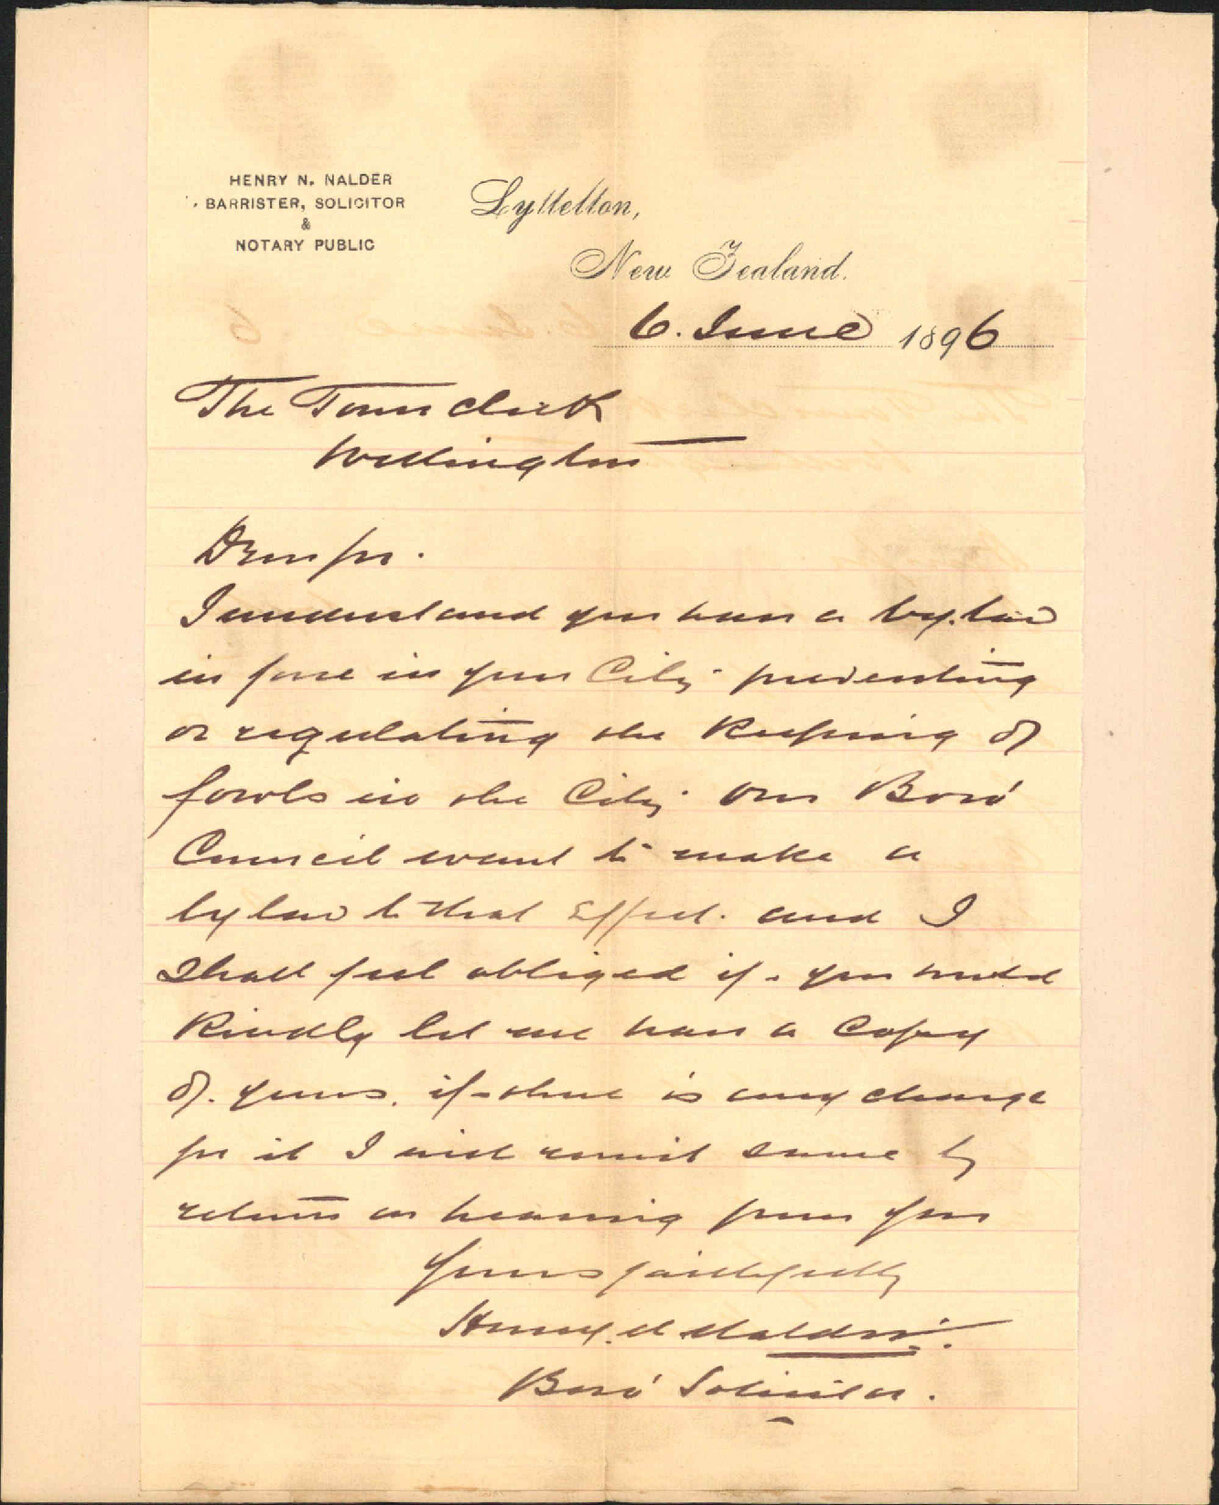 HENRY N. NALDER
BARRISTER, SOLICITOR
&
NOTARY PUBLIC
Lyttelton,
New Zealand.
6. June 1896
The Town Clerk
Wellington
Dear Sir.
I understand you have a by.law
in force in your City preventing
or regulating the Keeping of
fowls in the City. Our Boro'
Council want to make a
bylaw to that Effect. and I
shall feel obliged if you would
Kindly let me have a Copy
of yours. if there is any charge
for it I will remit same by
return on hearing from you
Yours faithfully
Henry N Nalder.
Boro' Solicitor.